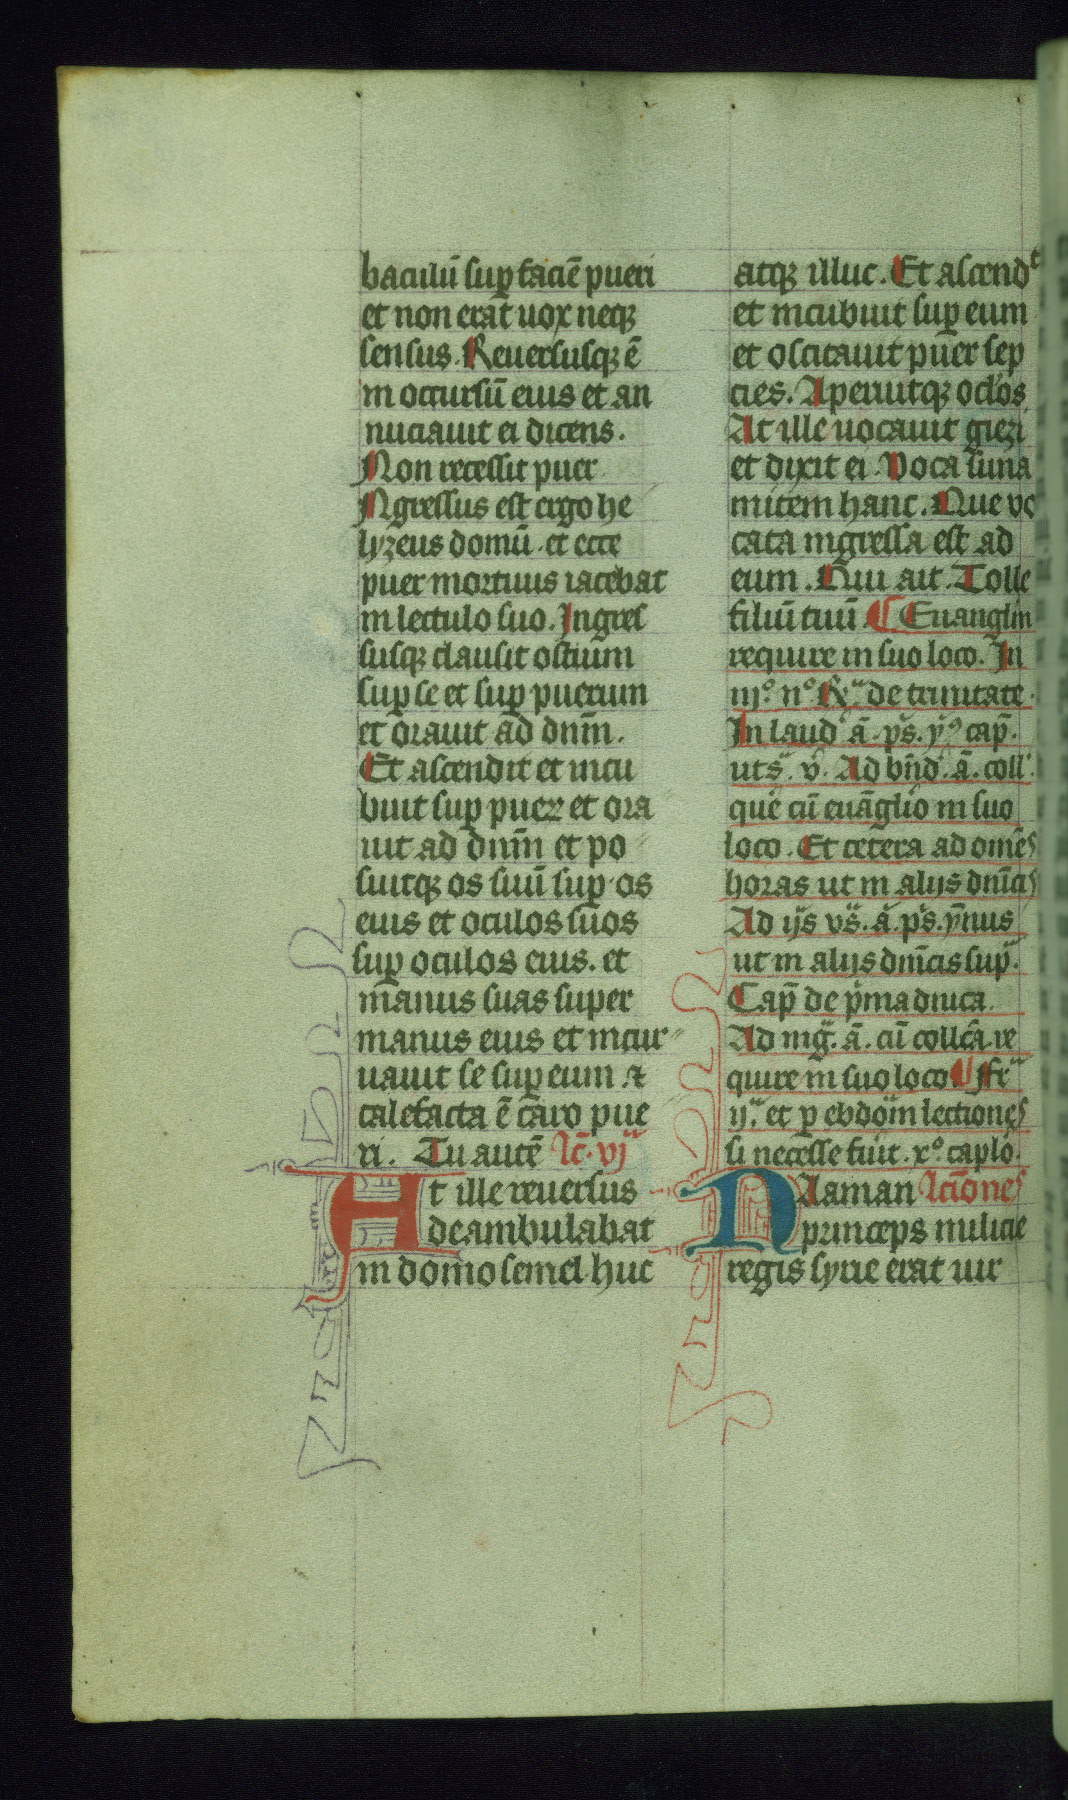 baculū sup̱ faciē pueri
et non erat uox neqꝫ
sensus. Reuersusqꝫ ē
in occursū eius et an
nuciauit ei dicens.
Non recessit puer
Ngressus est ergo he
lyzeus domū. et ecce
puer mortuus iacebat
in lectulo suo. Ingres
susqꝫ clausit ostium
sup̱ se et sup̱ puerum
et orauit ad dn̄m.
Et ascendit et incu
buit sup̱ pueꝝ et ora
uit ad dn̄m et po
suitqꝫ os suū sup̱ os
eius et oculos suos
sup̱ oculos eius. et
manus suas super
manus eius et incur
uauit se sup̱ eum. ⁊
calefacta ē caro pue
ri. Tu autē lc̄. vjᵃ
At ille reuersus
deambulabat
in domo semel huc
atqꝫ illuc. Et ascendᵗ
et incubuit sup̱ eum
et oscitauit puer sep
cies. Aperuitqꝫ oclōs
At ille uocauit giezi
et dixit ei. Voca suna
mitem hanc. Que vo
cata ingressa est ad
eum. Qui ait. Tolle
filiū tuū. ¶ Euangliū
require in suo loco. In
iijº. nº. Rᵃ de trinitate.
In laud' ā. ps̄. ẏº cap̄.
ut sᵃ. v̓. Ad bn̄d'. ā. coll'.
que cū euāglio in suo
loco. Et cetera ad omēs
horas ut in alijs dn̄cis
Ad ijs vs̄. ā. ps̄. ẏnus
ut in alijs dn̄icis supᵃ.
Cap̄ de p̓ma dnica.
Ad mḡ. ā. cū collc̄a. re
quire in suo loco. ¶ Frᵃ
ijᵃ. et p̱ ebdoᵐ lectiones
si necesse fuit. xº. caplo.
Naaman lcōnes
princeps milicie
regis syrie erat uir